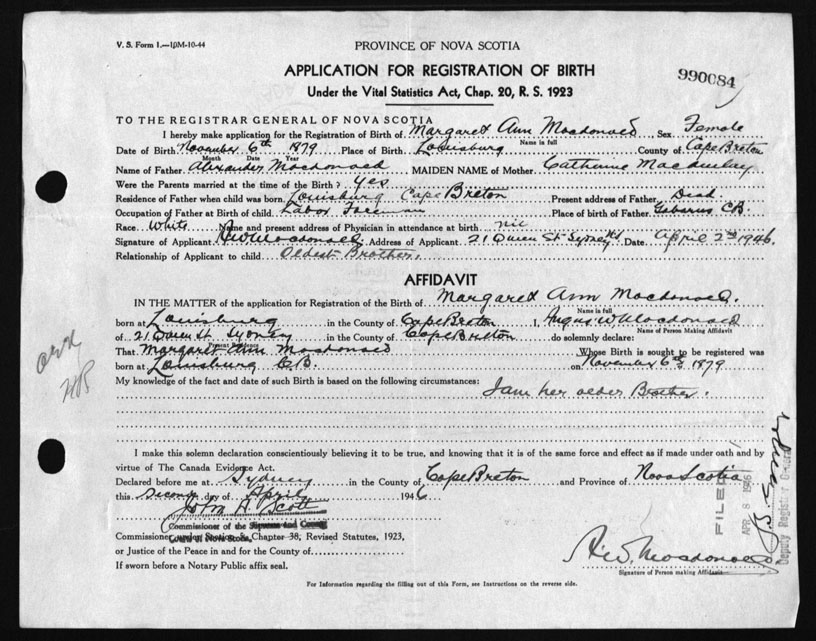 V. S. Form 1.—10M-10-44
PROVINCE OF NOVA SCOTIA
APPLICATION FOR REGISTRATION OF BIRTH
990084
Under the Vital Statistics Act, Chap. 20, R. S. 1923
TO THE REGISTRAR GENERAL OF NOVA SCOTIA
I hereby make application for the Registration of Birth of Margaret Ann Macdonald, Sex Female
Name in full
Date of Birth November 6th 1879 Place of Birth Louisburg County of Cape Breton
Month Date Year
Name of Father Alexander Macdonald MAIDEN NAME of Mother Catherine MacAulay
Were the Parents married at the time of the Birth? Yes
Residence of Father when child was born Louisburg Cape Breton Present address of Father Dead.
Occupation of Father at Birth of child Labor Foreman Place of birth of Father Gabarus C.B.
Race White Name and present address of Physician in attendance at birth nil
Signature of Applicant A W Macdonald Address of Applicant 21 Queen St Sydney Date April 2nd 1946.
Relationship of Applicant to child Oldest Brother.
AFFIDAVIT
IN THE MATTER of the application for Registration of the Birth of Margaret Ann Macdonald.
Name in full
born at Louisburg in the County of Cape Breton I, Angus W Macdonald
Name of Person Making Affidavit
of 21 Queen St Sydney in the County of Cape Breton do solemnly declare:
Present Residence
That Margaret Ann Macdonald Whose Birth is sought to be registered was
born at Louisburg C.B. on November 6th 1879
My knowledge of the fact and date of such Birth is based on the following circumstances:
I am her older Brother.
I make this solemn declaration conscientiously believing it to be true, and knowing that it is of the same force and effect as if made under oath and by
virtue of The Canada Evidence Act.
Declared before me at Sydney in the County of Cape Breton and Province of Nova Scotia
this Second day of April 1946
John H. Scott
Commissioner of the Supreme and County
Court of Nova Scotia
Commissioner under Section 8, Chapter 38, Revised Statutes, 1923,
or Justice of the Peace in and for the County of
If sworn before a Notary Public affix seal.
A. W. Macdonald
Signature of Person making Affidavit
For Information regarding the filling out of this Form, see Instructions on the reverse side.
FILED
APR 8 1946
Deputy Registrar General